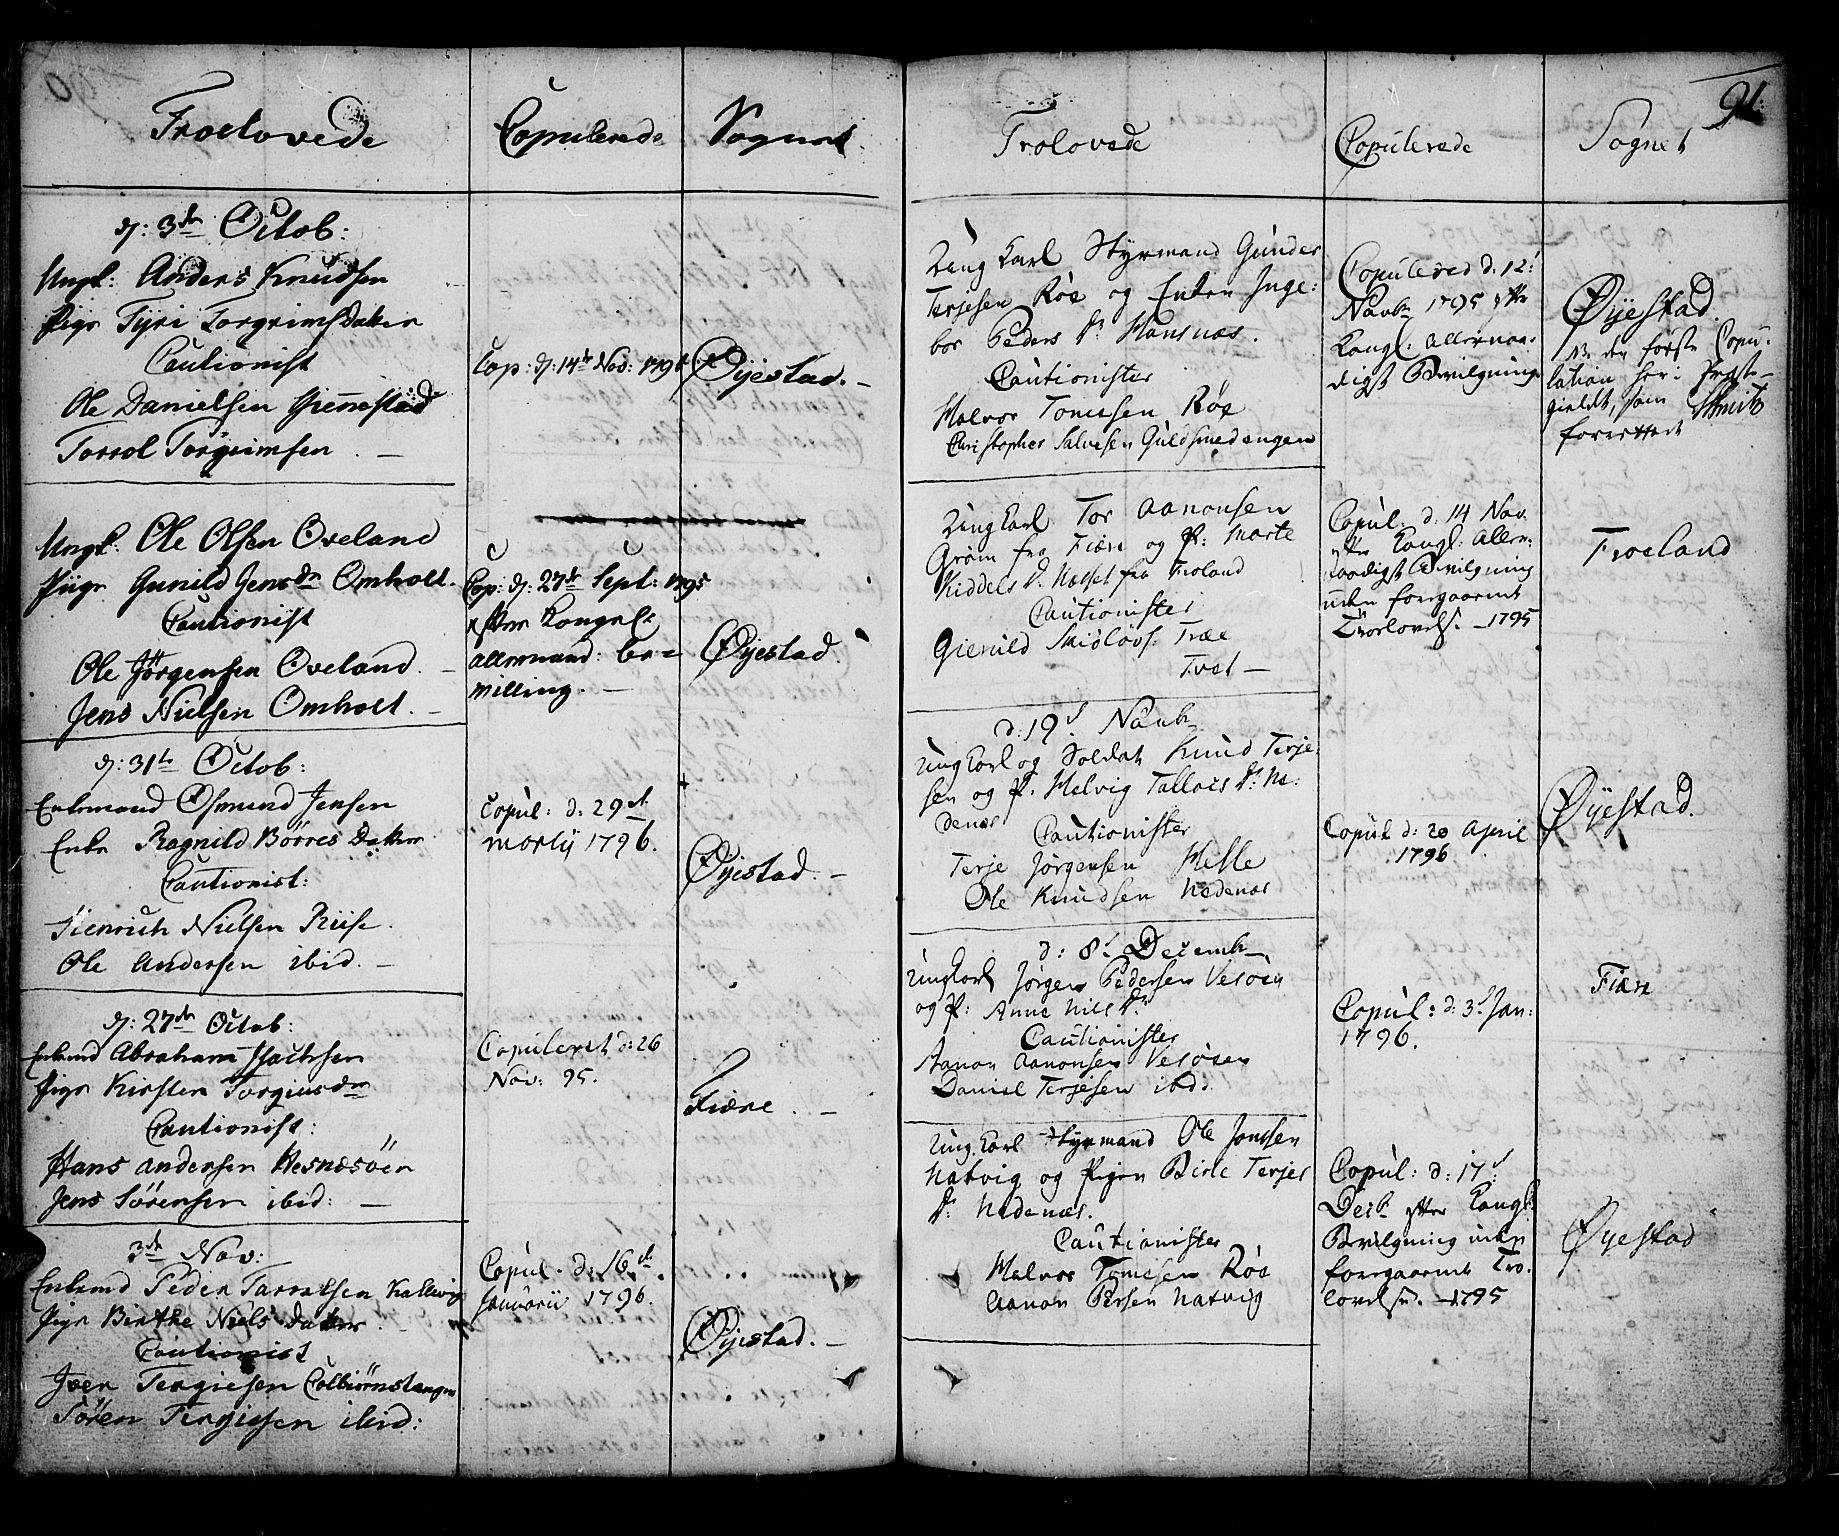 90
Troelovede
Copulerede
Sognet
d: 3de Octob:
Ungk: Anders Knudsen
Pige Tyri Torgrimsdatter
Cautionist
Ole Danielsen Giennestad
Torrol Torgrimsen
Cop: d: 14de Nov: 1795
Øyestad. –
Ungk: Ole Olsen Oveland
Piige Gunild Jensdr Omholt.
Cautionist
Ole Jörgensen Oveland. –
Jens Nielsen Omholt. –
Cop: d: 27de Sept: 1795
efter Kongel:
allernaad: be=
villing. –
Øyestad.
d: 31te Octob:
Enkemand Osmund Jensen
Enke Ragnild Börres Datter
Cautionist:
Henrich Nielsen Riise.
Ole Andersen ibid. –
Copul: d: 29de
Martij 1796.
Øyestad. –
d: 27de Octob:
Enkemd Abraham Isachsen
Pige Kirsten Torgiusdr
Cautionist:
Hans Andersen Hesnæsöen
Jens Sörensen ibid: –
Copuleret d: 26
Nov: 95.
Fiære. –
3de Nov:
Enkemd Peder Tarraldsen Kallevig
Pige Birthe Niels Datter.
Cautionist
Iver Tergiesen Colbiörnstangen
Sören Tergiesen ibid:
Copul. d: 16de
Januarii 1796.
Øyestad. –
91.
Trolovede
Copulerede
Sognet
Ung Karl Styrmand Gunder
Terjesen Røe og Enken Inge:
bor Peders Dr Hansnæs.
Cautionister
Halvor Tomessen Røe
Christopher Salvesen Guldsmedengen
Copulered d: 12t
Novbr 1795 efter
Kongl: allernaa:
digst Bevilgning
Øyestad.
NB den første Copu:
lation her i Præste-
gieldet, som Schmit
forrettet
Ung Karl Tor Aanonsen
Grøm fra Fiære og P: Marte
Kiddels D. Næsset fra Froland
Cautionister
Gieruld Skidløvs. Træe
Tvet –
Copul: d: 14 Nov
efter Kongl: Aller:
naadigst Bevilgning
uden foregaaende
Troelovelse. – 1795
Froeland
d: 19d Novbr
Ung Karl og Soldat Knud Terje:
sen og P. Helvig Tallacs Dr. Ne:
denæs
Cautionister
Terje Jørgensen Helle
Ole Knudsen Nedenæs
Copul d: 20 April
1796
Øyestad.
d: 8d Decembr
Ung Karl Jørgen Pedersen Vesøen
og P: Anne Nils Dr
Cautionister
Aanon Aanonsen Vesøen
Daniel Terjesen ibd.
Copul: d: 3d Jan:
1796.
Fiære
Ung Karl Styrmand Ole Jonssen
Natvig og Pigen Birte Terjes
Dr: Nedenæs.
Cautionister
Halvor Tomessen Røe
Aanon Persen Natvig
Copul: d: 17d
Decbr efter Kongl:
Bevilgning uden
foregaaende Tro:
lovelse. – 1795
Øyestad